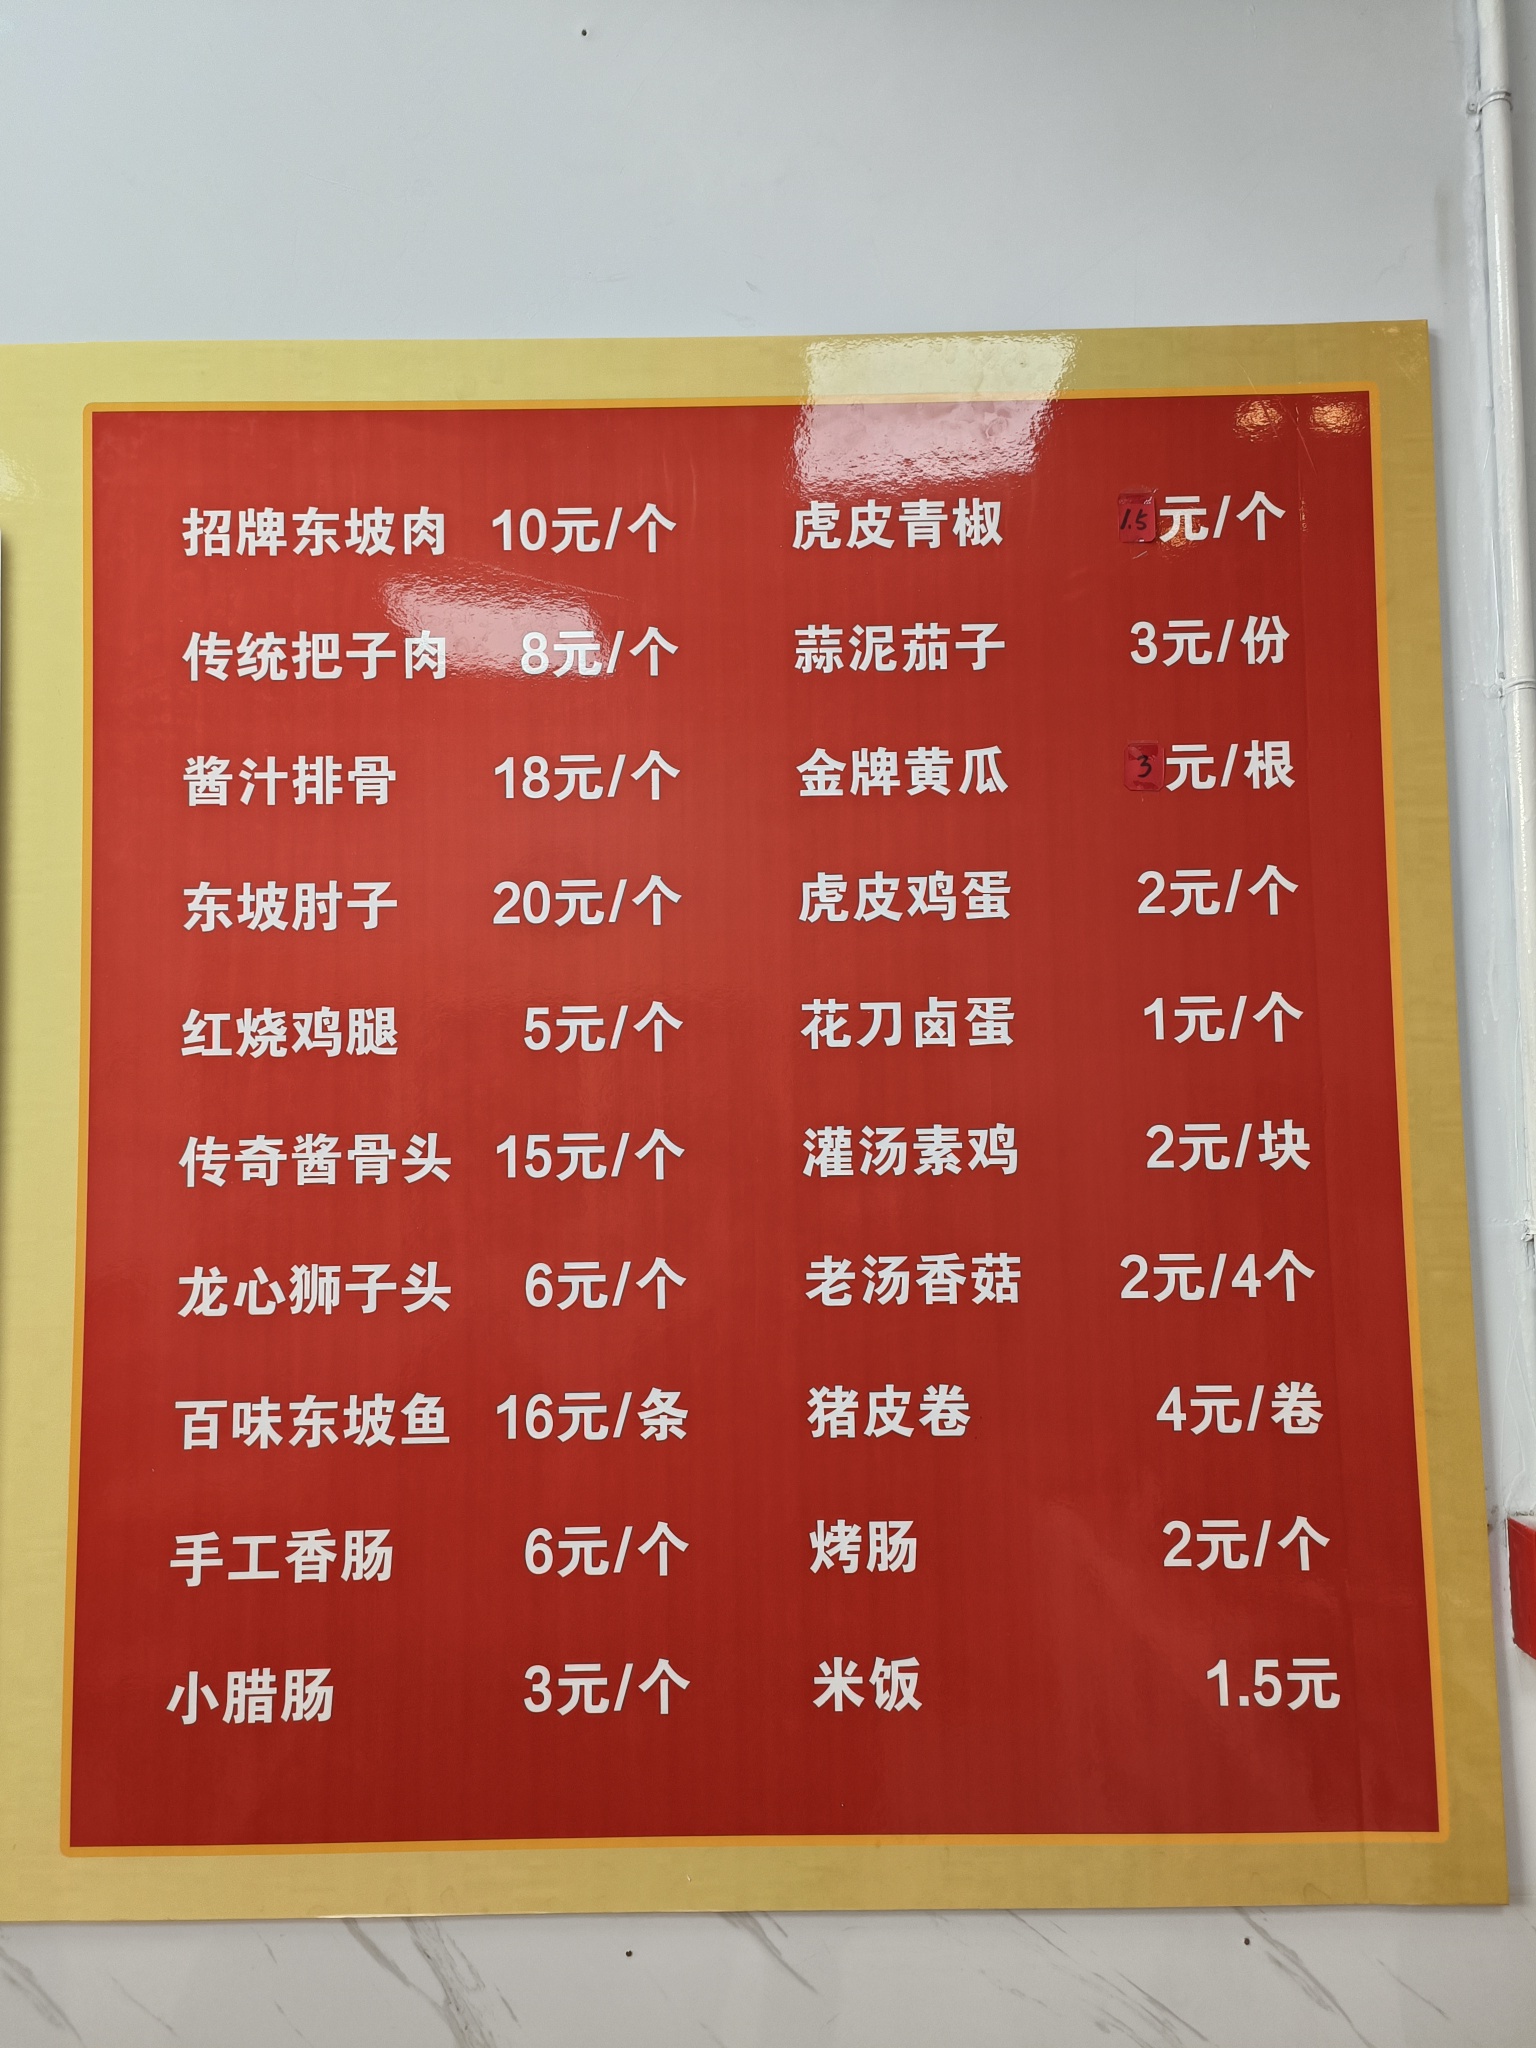 招牌东坡肉 10元/个 虎皮青椒 1.5元/个
传统把子肉 8元/个 蒜泥茄子 3元/份
酱汁排骨 18元/个 金牌黄瓜 3元/根
东坡肘子 20元/个 虎皮鸡蛋 2元/个
红烧鸡腿 5元/个 花刀卤蛋 1元/个
传奇酱骨头 15元/个 灌汤素鸡 2元/块
龙心狮子头 6元/个 老汤香菇 2元/4个
百味东坡鱼 16元/条 猪皮卷 4元/卷
手工香肠 6元/个 烤肠 2元/个
小腊肠 3元/个 米饭 1.5元